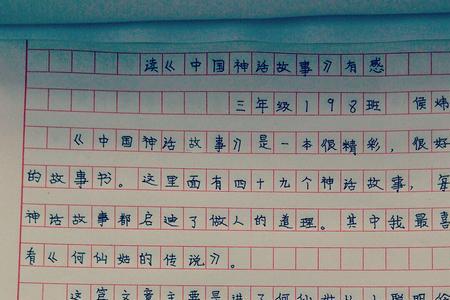 读《中国神话故事》有感
三年级198班 侯炜
《中国神话故事》是一本很精彩,很好
的故事书。这里面有四十九个神话故事,每
神话故事都启迪了做人的道理。其中我最喜
有《何仙姑的传说》。
这篇文章主要是讲了何仙姑